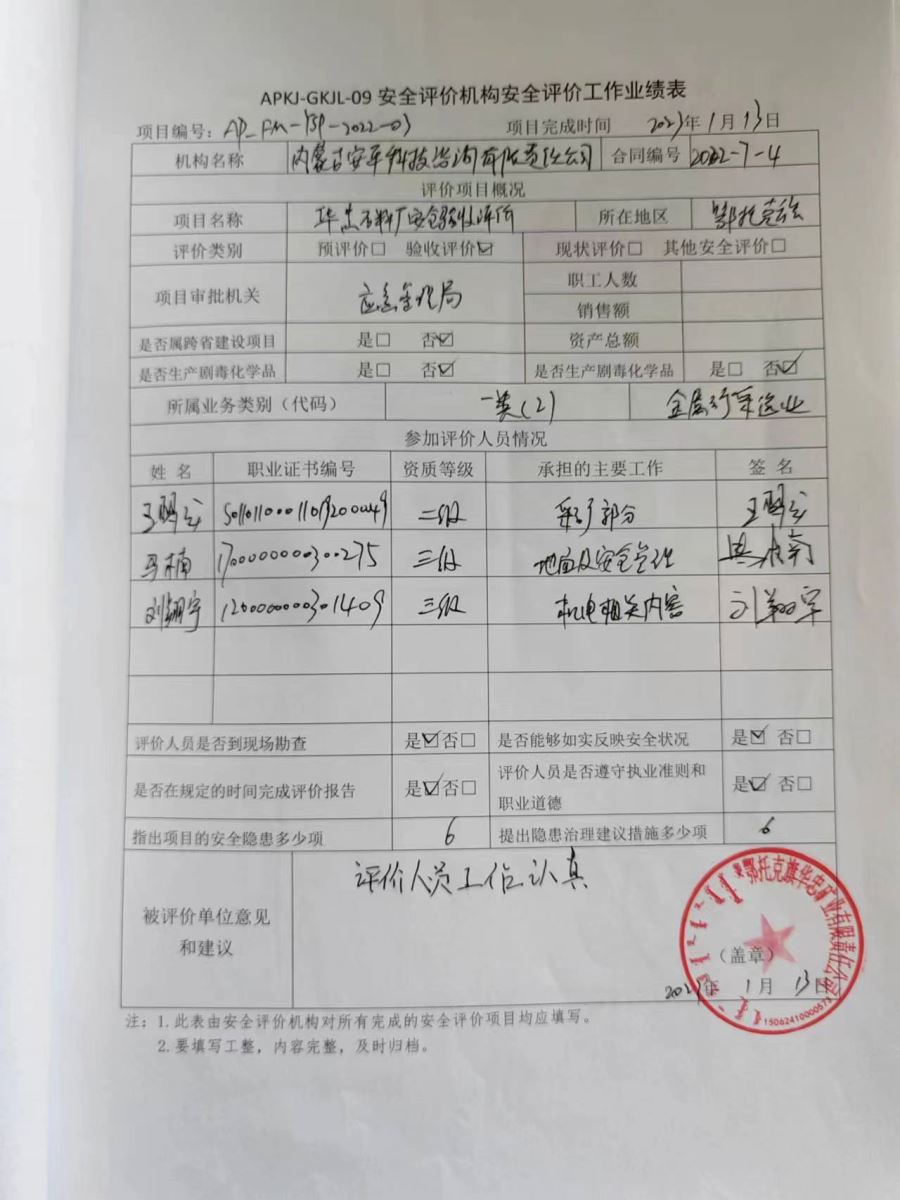 APKJ-GKJL-09 安全评价机构安全评价工作业绩表
项目编号： 2022-03 项目完成时间 2023年1月13日
机构名称 内蒙古安平科技咨询有限责任公司 合同编号 2022-7-4
评价项目概况
项目名称 华忠石料厂安全验收评价 所在地区 鄂托克旗
评价类别 预评价□ 验收评价☑ 现状评价□ 其他安全评价□
项目审批机关 应急管理局 职工人数
销售额
是否属跨省建设项目 是□ 否☑ 资产总额
是否生产剧毒化学品 是□ 否☑ 是否生产剧毒化学品 是□ 否☑
所属业务类别（代码） 一类(2) 金属矿采选业
参加评价人员情况
姓 名 职业证书编号 资质等级 承担的主要工作 签 名
王鹏 二级 采矿部分 王鹏
马楠 1700000000300275 三级 地面及安全管理 马楠
刘翔宇 1200000000301409 三级 机电相关内容 刘翔宇
评价人员是否到现场勘查 是☑否□ 是否能够如实反映安全状况 是☑ 否□
是否在规定的时间完成评价报告 是☑否□ 评价人员是否遵守执业准则和
职业道德 是☑ 否□
指出项目的安全隐患多少项 6 提出隐患治理建议措施多少项 6
被评价单位意见
和建议
评价人员工作认真
鄂托克旗华忠矿业有限责任公司
（盖章）
2023年 1月 13日
15062410000573
注：1.此表由安全评价机构对所有完成的安全评价项目均应填写。
2.要填写工整，内容完整，及时归档。